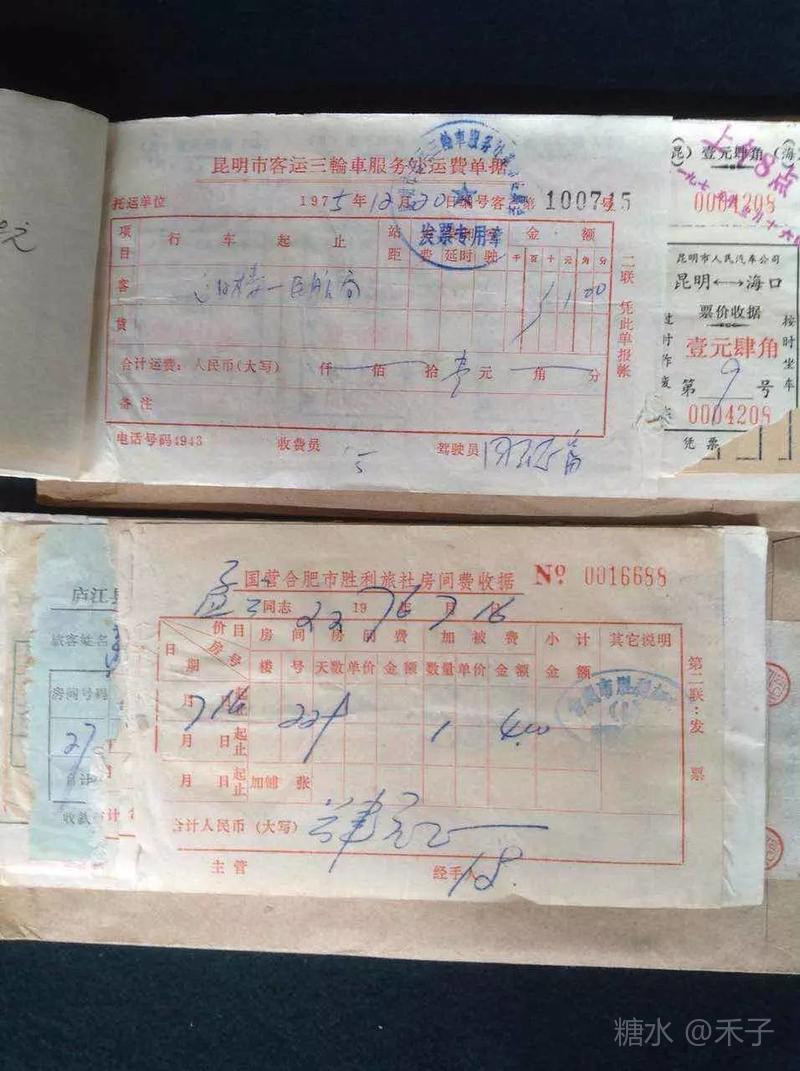 昆明市客运三輪車服务处运费单据
托运单位 1975年12月20日 编号客 第 100715 号
项目 行车起止 站距 费 延时 金额
千 百 十 元 角 分
客
货
1 00
合计运费：人民币(大写) 仟 佰 拾 壹 元 角 分
备注
电话号码4943 收费员 驾驶员
二联 凭此单报帐
三輪車服务
发票专用章
昆) 壹元肆角 (海
上午8点
0004208
昆明市人民汽車公司
昆明⟷海口
票价收据
壹元肆角
第 9 号
0004208
过时作废
按时坐車
凭票
国营合肥市胜利旅社房间费收据 Nº 0016688
同志 22 1976 7 16
价目 房号 日期 房间 房间费 加被费 小计 其它说明
楼号 天数 单价 金额 数量 单价 金额 金额
7月16日 起止 1 4.00
月 日 起止
月 日 起止 加铺 张
合计人民币 (大写) 肆元
主管 经手人
第二联：发票
市胜利
庐江县
旅客姓名
房间号码
27
合计
收款
糖水 @禾子